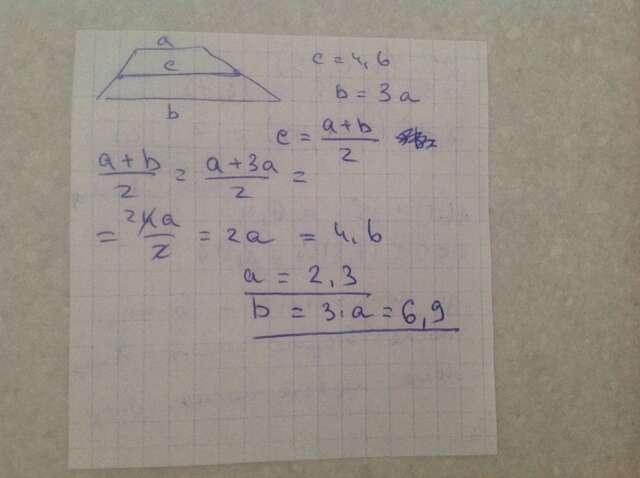 a
c
b
c = 4,6
b = 3a
c = a+b/2
a+b/2 = a+3a/2 =
= 2 4a/2 = 2a = 4,6
a = 2,3
b = 3·a = 6,9